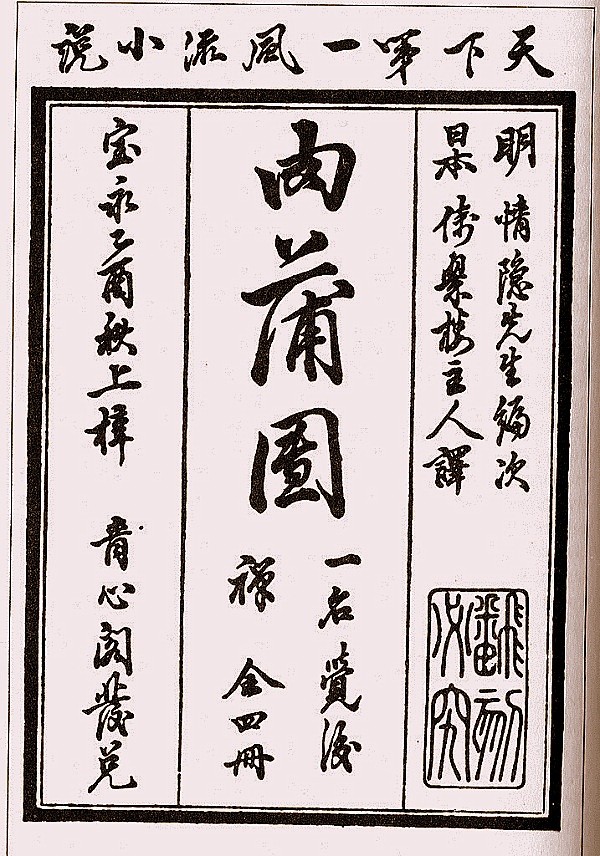 天下第一風流小說
明 情隱先生編次
日本 倚翠楼主人譯
翻刻必究
肉蒲團
一名覺後
禪 全四冊
宝永乙酉秋上梓 青心閣發兌